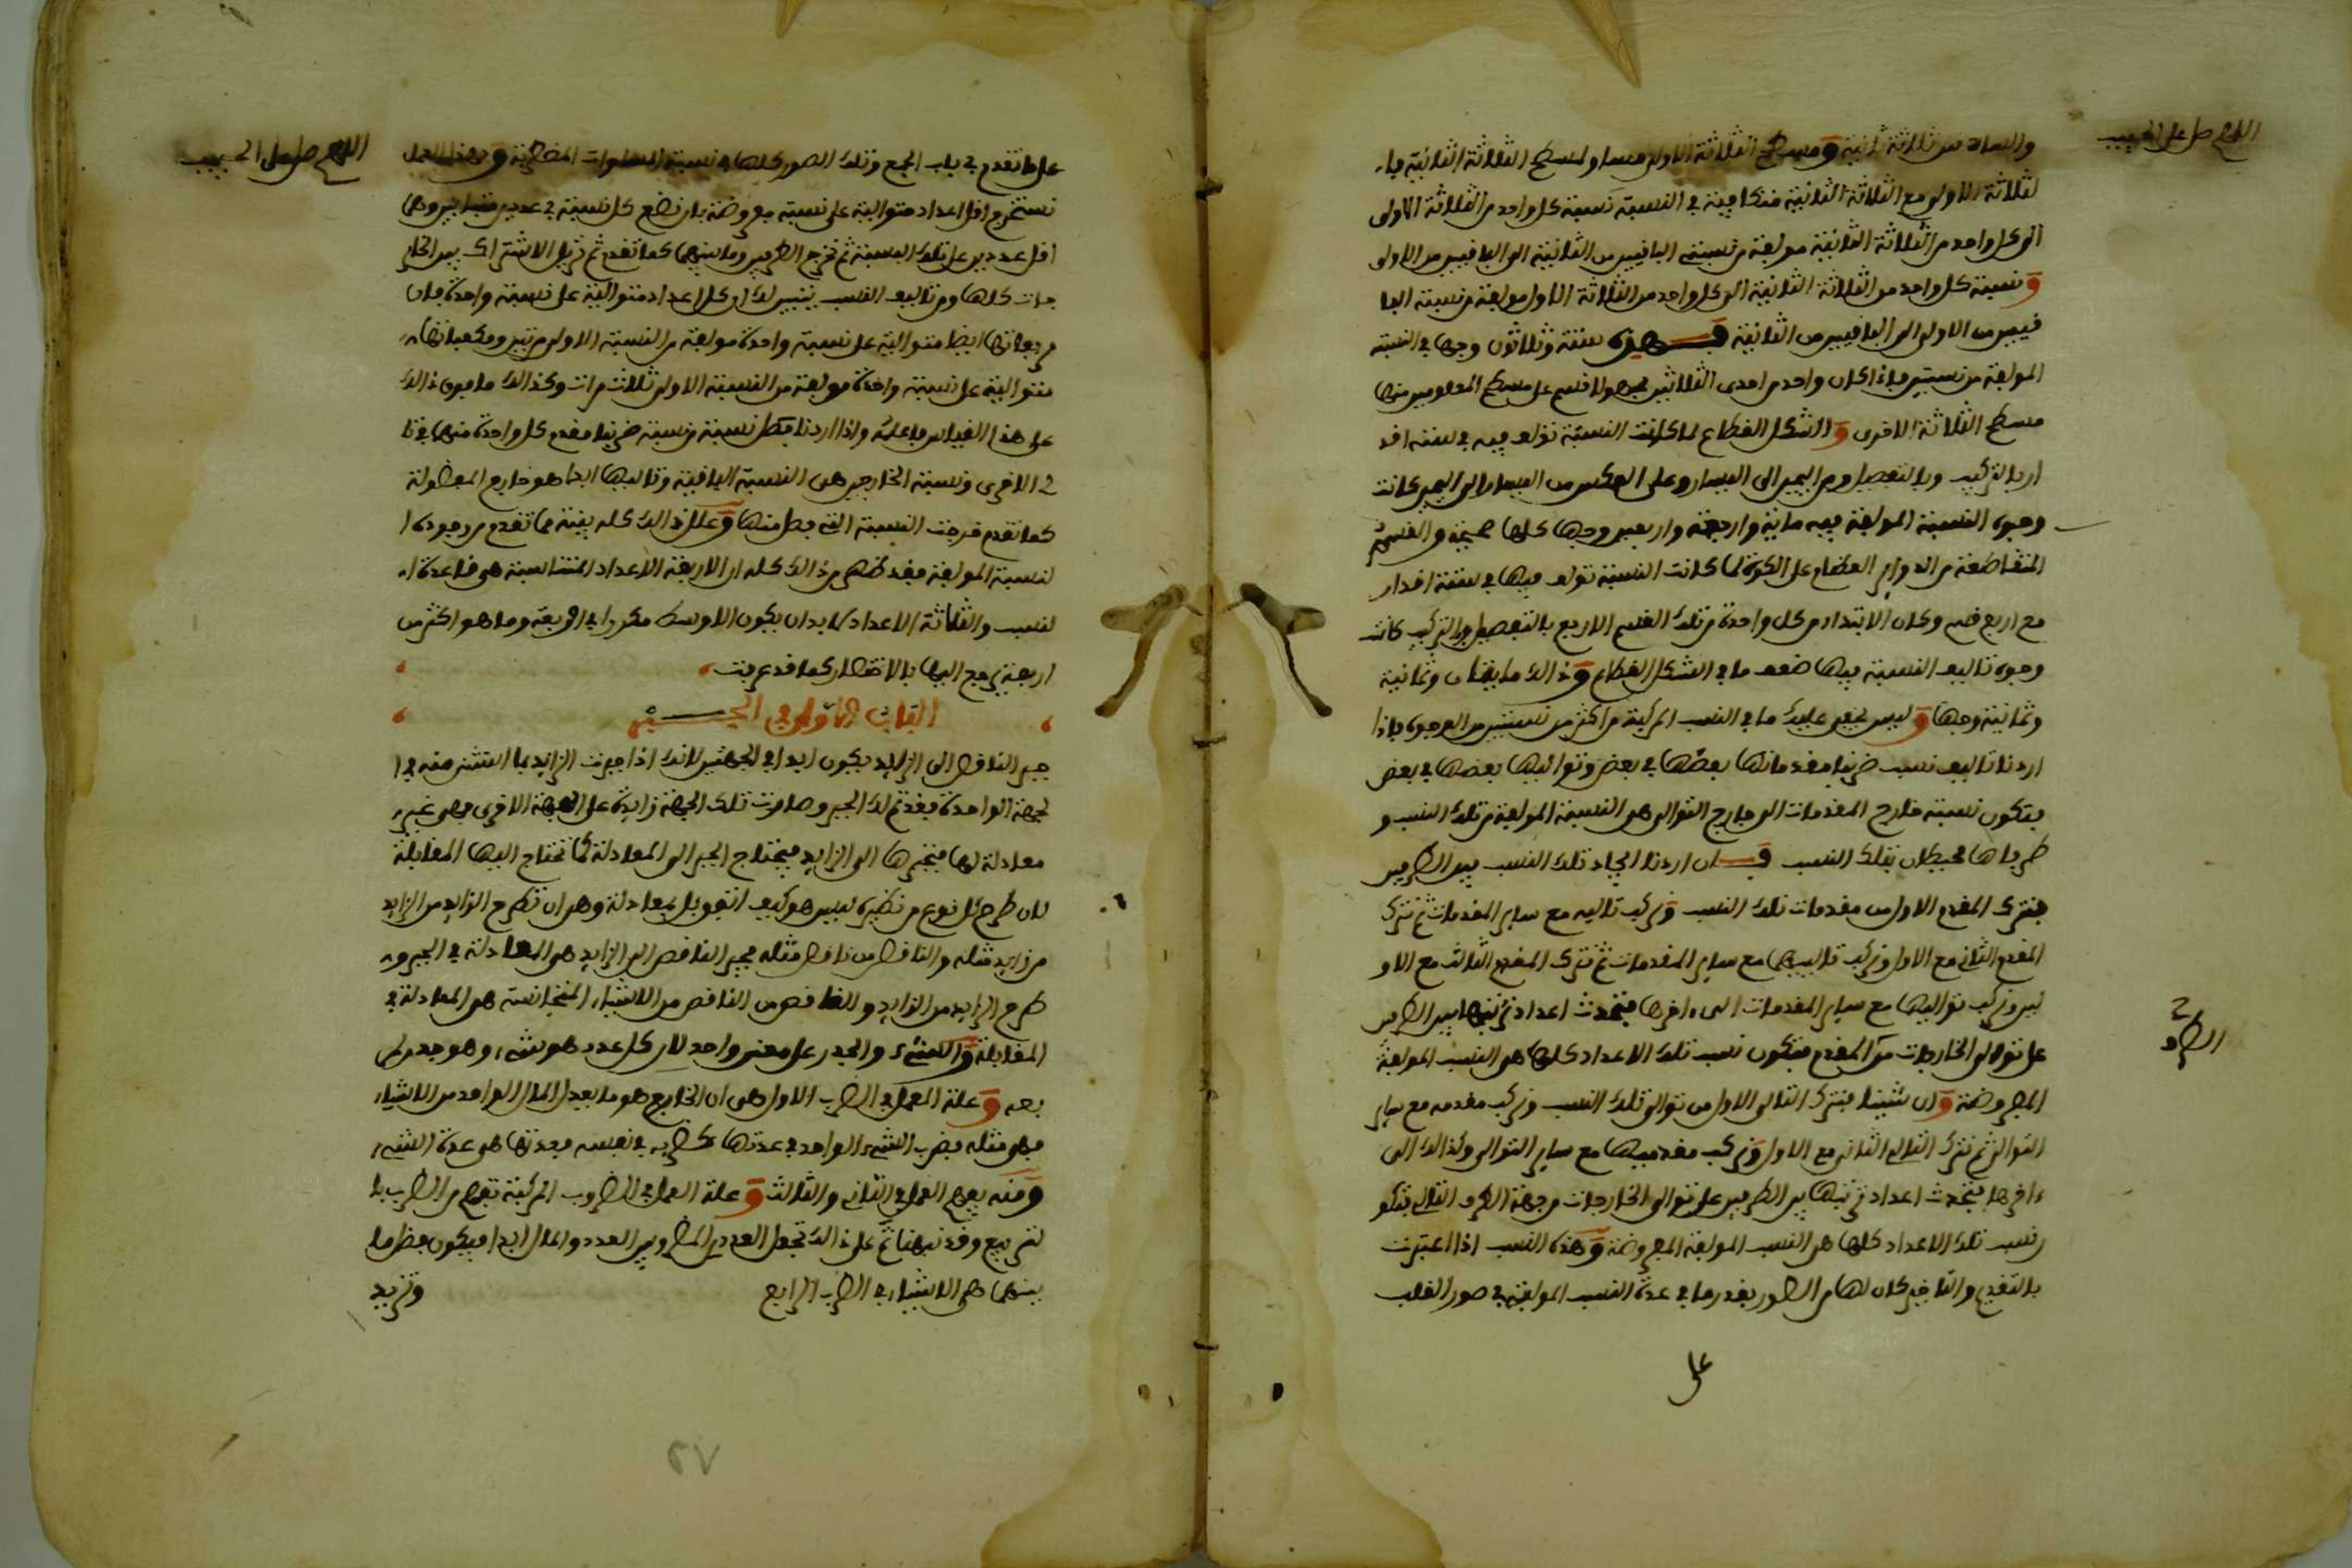 اللهم صل على الحبيب
والستة من ثلاثة ثانية ومسطح الثلاثة الاولى مساو لمسطح الثلاثة الثانية فا
لثلاثة الاولى مع الثلاثة الثانية متكافية في النسبة نسبة كل واحد من الثلاثة الاولى
الى كل واحد من الثلاثة الثانية مولفة من نسبتي الباقيين من الثانية الى الباقيين من الاولى
ونسبة كل واحد من الثلاثة الثانية الى كل واحد من الثلاثة الاول مولفة من نسبة البا
قيين من الاولى الى الباقيين من الثانية فهذه ستة وثلاثون وجها في النسبة
المولفة من نسبتين فاذا كان واحد من احدى الثلاثتين مجهولا قسم على مسطح المعلومين منها
مسطح الثلاثة الاخرى والشكل القطاع لما كانت النسبة تولف فيه في ستة اقد
ار بالتركيب وبالتفصيل ومن اليمين الى اليسار وعلى العكس من اليسار الى اليمين كانت
وجوه النسبة المولفة فيه ماية واربعة واربعين وجها كلها صحيحة والقسي
المتقاطعة من الدواير العظام على الكرة لما كانت النسبة تولف فيها في ستة اقدار
مع اربع قسي وكان الابتداء من كل واحدة من تلك القسي الاربع بالتفصيل والتركيب كانت
وجوه تاليف النسبة فيها ضعف ما في الشكل القطاع وذالك مايتان وثمانية
وثمانية وجها وليس يخفى عليك ما في النسب المركبة من اكثر من نسبتين من الوجوه فاذا
اردنا تاليف نسب ضربنا مقدماتها بعضها في بعض وتواليها بعضها في بعض
فتكون نسبة خارج المقدمات الى خارج التوالي هي النسبة المولفة من تلك النسب و
طرفاها محيطان بتلك النسب فان اردنا ايجاد تلك النسب بين الطرفين
فنترك المقدم الاول من مقدمات تلك النسب ونركب تاليه مع ساير المقدمات ثم نترك
المقدم الثاني مع الاول ونركب تالييهما مع ساير المقدمات ثم نترك المقدم الثالث مع الاو
لين ونركب تواليها مع ساير المقدمات الى ءاخرها فتحدث اعداد نرتبها بين الطرفين
على توالي الخارجات من المقدم فتكون نسب تلك الاعداد كلها هي النسب المولفة
المفروضة وان شينا فنترك التالي الاول من توالي تلك النسب ونركب مقدمه مع ساير
التوالي ثم نترك التالي الثاني مع الاول ونركب مقدميهما مع ساير التوالي وكذالك الى
ءاخرها فتحدث اعداد نرتبها بين الطرفين على توالي الخارجات من جهة الطرف التالي فتكو
ن نسب تلك الاعداد كلها هي النسب المولفة المفروضة وهذه النسب اذا اعتبرت
بالتقديم والتاخير كان لها من الصور بقدر ما في عدة النسب المولفة في صور القلب
على
اللهم صل على الحبيب
على ما تقدم في باب الجمع وتلك الصور كلها في نسبة المسطحات وبهذا العمل
نستخرج اقل اعداد متوالية على نسبة مفروضة بان نضع كل نسبة في عددين متباينين وهما
اقل عددين على تلك النسبة ثم نخرج الطرفين وما بينهما كما تقدم ثم نزيل الاشتراك بين الخار
جات كلها ومن تاليف النسب يتبين لك ان كل اعداد متوالية على نسبة واحدة فان
مربعاتها ايضا متوالية على نسبة واحدة مولفة من النسبة الاولى مرتين ومكعباتها
متوالية على نسبة واحدة مولفة من النسبة الاولى ثلاث مرات وكذالك ما فوق ذالك
على هذا القياس فاعلمه واذا اردنا فصل نسبة من نسبة ضربنا مقدم كل واحدة منهما في تا
لي الاخرى ونسبة الخارجين هي النسبة الباقية وتاليها ابدا هو خارج المفصولة
كما تقدم خرجت النسبة التي فصل منها وعلل ذالك كله بينة مما تقدم من وجوه ا
لنسبة المولفة فقد ظهر من ذالك كله ان الاربعة الاعداد المتناسبة هي قاعدة ا
لنسب والثلاثة الاعداد لا بد ان يكون الاوسط مكررا في اربعة وما هو اكثر من
اربعة يرجع اليها بالاختصار كما قد عرفت
الباب الاول في الجبر
جبر الناقص الى الزايد يكون ابدا في الجهتين لانك اذا جبرت الزايد بما استثني منه في ا
لجهة الواحدة فقد تم لك الجبر وصارت تلك الجهة زايدة على الجهة الاخرى فهي غير
معادلة لها فتجبرها الى الزايد فيحتاج الجبر الى المعادلة كما تحتاج اليها المقابلة
لان طرح كل نوع من نظيره ليس هو كيف اتفق بل بمعادلة وهو ان تطرح الزايد من الزايد
من زايد مثله والناقص من ناقص مثله فجبر الناقص الى الزايد هي المعادلة في الجبر و
طرح الزايد من الزايد والناقص من الناقص من الاشياء المتجانسة هو المعادلة في
المقابلة والشيء والجذر على معنى واحد لان كل عدد هو شيء وهو جذر لمر
بعه وعلة العمل في الضرب الاول هي ان الخارج هو ما يعدل المال الواحد من الاشياء
فهي مثله فضرب الشيء الواحد في عدتها كضربه في نفسه فعدتها هي عدة الشيء
ومنه يفهم العمل في الثاني والثالث وعلة العمل في الضروب المركبة تفهم من الضرب با
لتربيع وقد نبهنا ثم على ذالك تجعل العددين المضروبين العدد والمال ابدا فيكون فضل ما
بينهما هي الاشياء في الضرب الرابع
وتزيد
٥٧